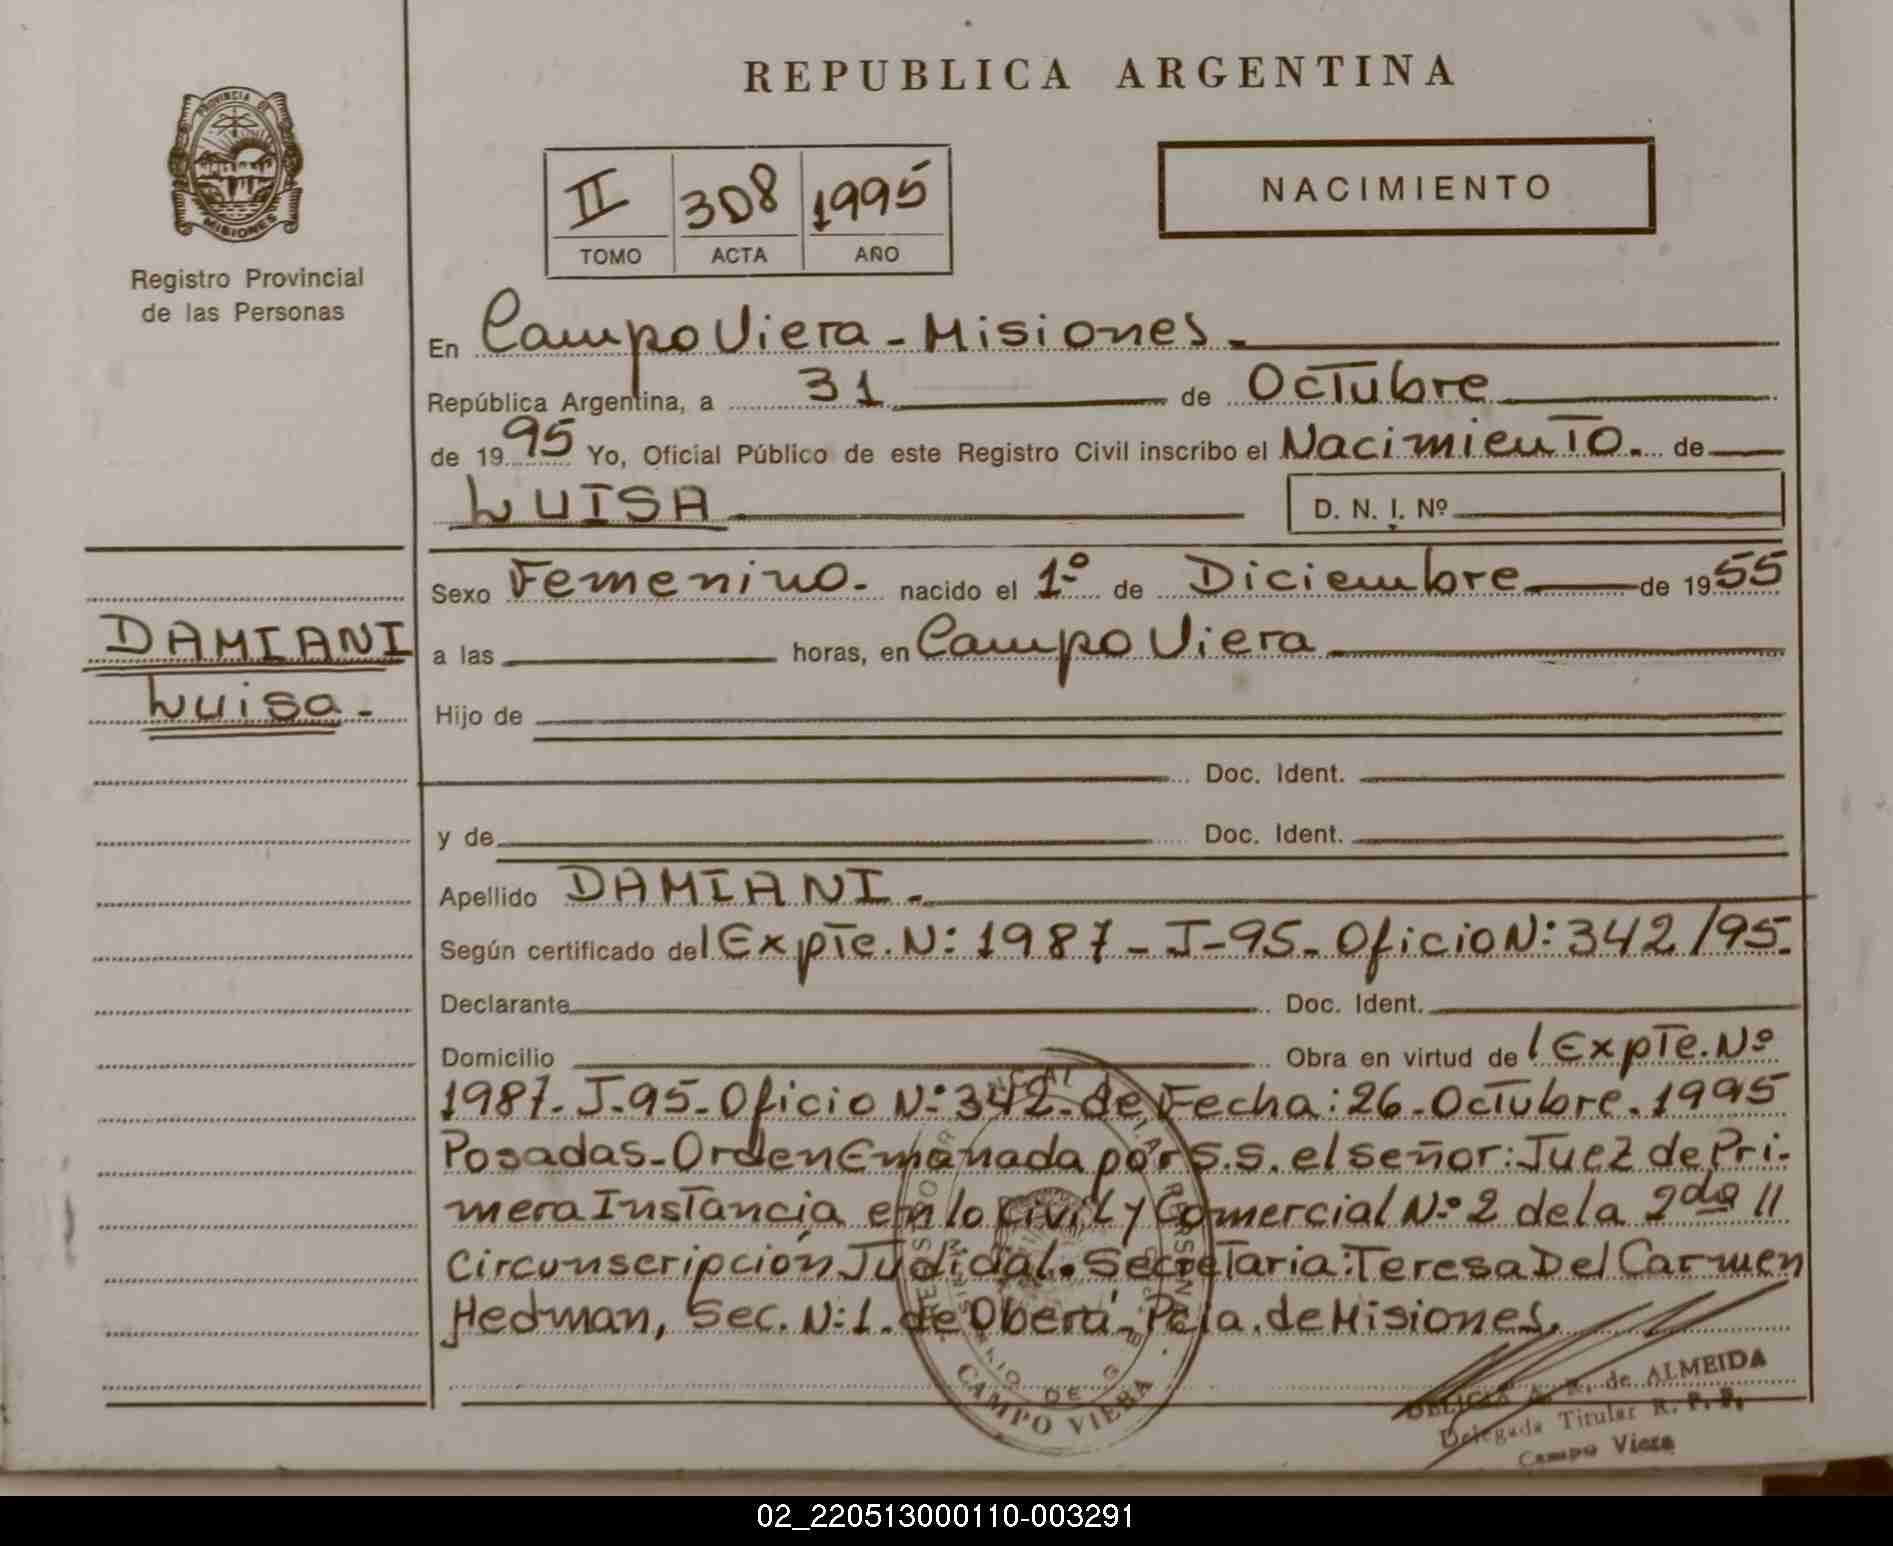 REPUBLICA ARGENTINA
PROVINCIA DE
MISIONES
Registro Provincial
de las Personas
II 308 1995
TOMO ACTA AÑO
NACIMIENTO
En Campo Viera - Misiones.
República Argentina, a 31 de Octubre
de 1995 Yo, Oficial Público de este Registro Civil inscribo el Nacimiento. de
LUISA D. N. I. Nº
Sexo Femenino. nacido el 1º de Diciembre de 1955
DAMIANI
Luisa.
a las horas, en Campo Viera
Hijo de
Doc. Ident.
y de Doc. Ident.
Apellido DAMIANI.
Según certificado del Expte. N: 1987 - J-95. Oficio N: 342/95.
Declarante Doc. Ident.
Domicilio Obra en virtud del Expte. Nº
1987. J-95. Oficio Nº 342. de Fecha: 26. Octubre. 1995
Posadas. Orden Emanada por S.S. el señor: Juez de Pri-
mera Instancia en lo Civil y Comercial Nº 2 de la 2da II
Circunscripción Judicial. Secretaria: Teresa Del Carmen
Hedman, Sec. N: 1. de Oberá - Pcia. de Misiones.
CAMPO VIERA
DELICIA A. R. de ALMEIDA
Delegada Titular R. P. P.
Campo Viera
02_220513000110-003291